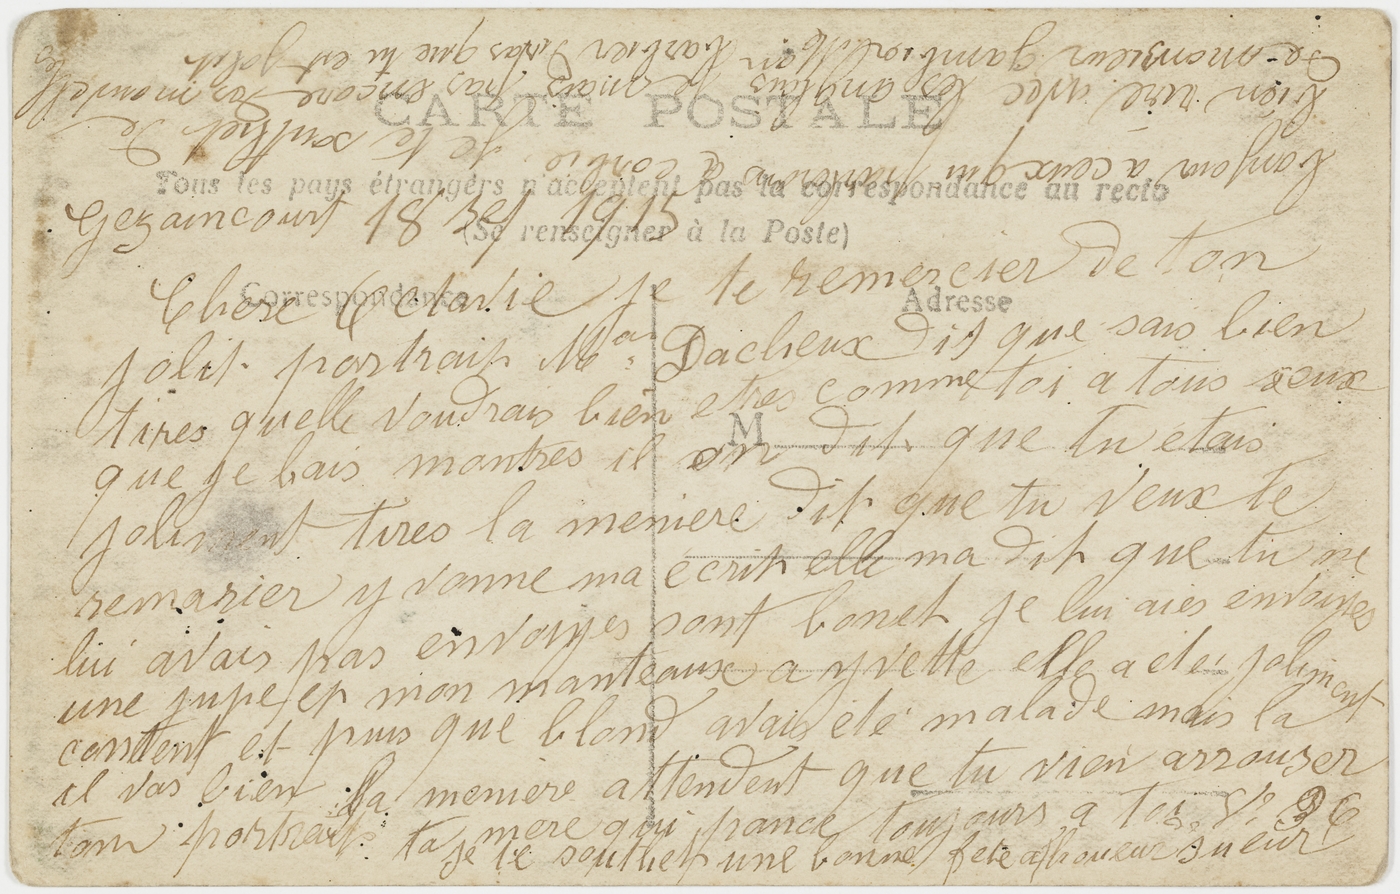 CARTE POSTALE
Tous les pays étrangers n'acceptent pas la correspondance au recto
(Se renseigner à la Poste)
Correspondance
Adresse
M
Gezaincourt 18 1915
Chere Octavie je te remercier de ton
jolit portrait Dacheux dit que sais bien
tires quelle voudrais bien etres comme toi a tous xeux
que je lais montres il on dit que tu etais
joliment tires la meniere dit que tu veux te
remarier yvonne ma ecrit elle ma dit que tu ne
lui avais pas envoyes sont bonet je lui aies envoyes
une jupe et mon manteaux a yvette elle a etei joliment
content et puis que blond avais été malade mais la
il vas bien La meniere attendent que tu vien arrouser
ton portrait ta mere qui pance toujours a toi
je te souhet une bonne fete
bonjour a ceux qui je te souhet de
bien rire avec les anglais mais pas encore
de monsieur que tu est jolit